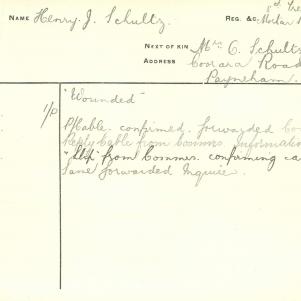 NAME Henry. J. Schultz. REG. &C.:
NEXT OF KIN Mrs C. Schultz
ADDRESS Coorara Road
Payneham.
"Wounded"
1/P
P/Cable. confirmed. forwarded
Reply cable from Commrs. information
"Slip" from Commrs. confirming ca
Lane forwarded Inquire.